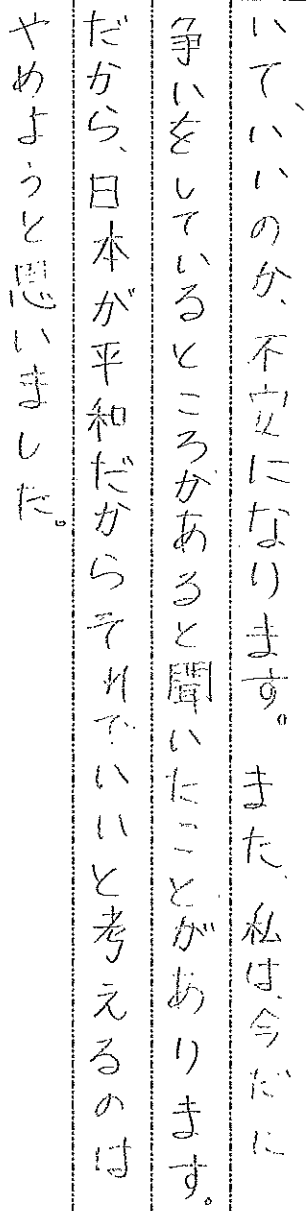 いて、いいのか、不安になります。また、私は、今だに
争いをしているところがあると聞いたことがあります。
だから、日本が平和だからそれでいいと考えるのは
やめようと思いました。